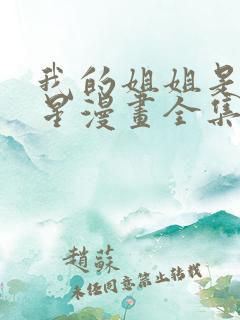 我的姐姐是
星漫畫全集
趙蘇
未经同意禁止转载